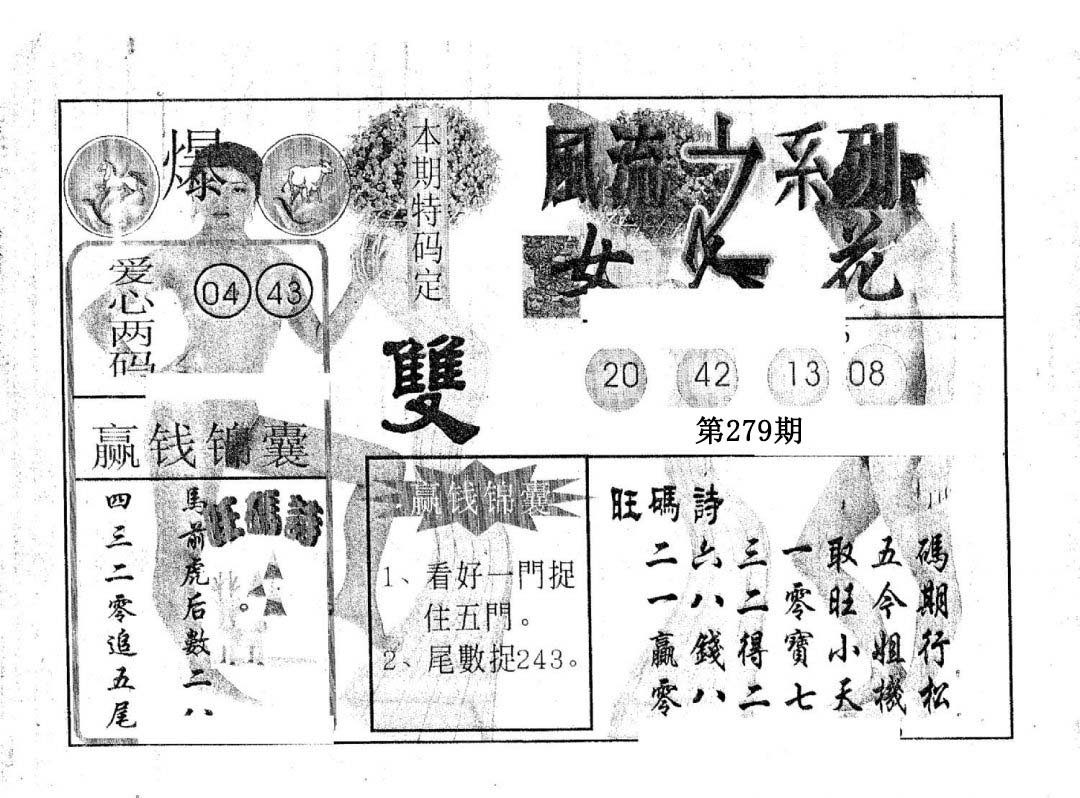 爆
本期特码定
雙
風流之系列
女人花
爱心两码
04 43
20 42 13 08
第279期
赢钱锦囊
旺碼詩
馬前虎后数二八。
四三二零追五尾
赢钱锦囊
1、看好一門捉
住五門。
2、尾數捉243。
旺碼詩
碼期行松
五今姐機
取旺小天
一零寶七
三二得二
六八錢八
二一贏零